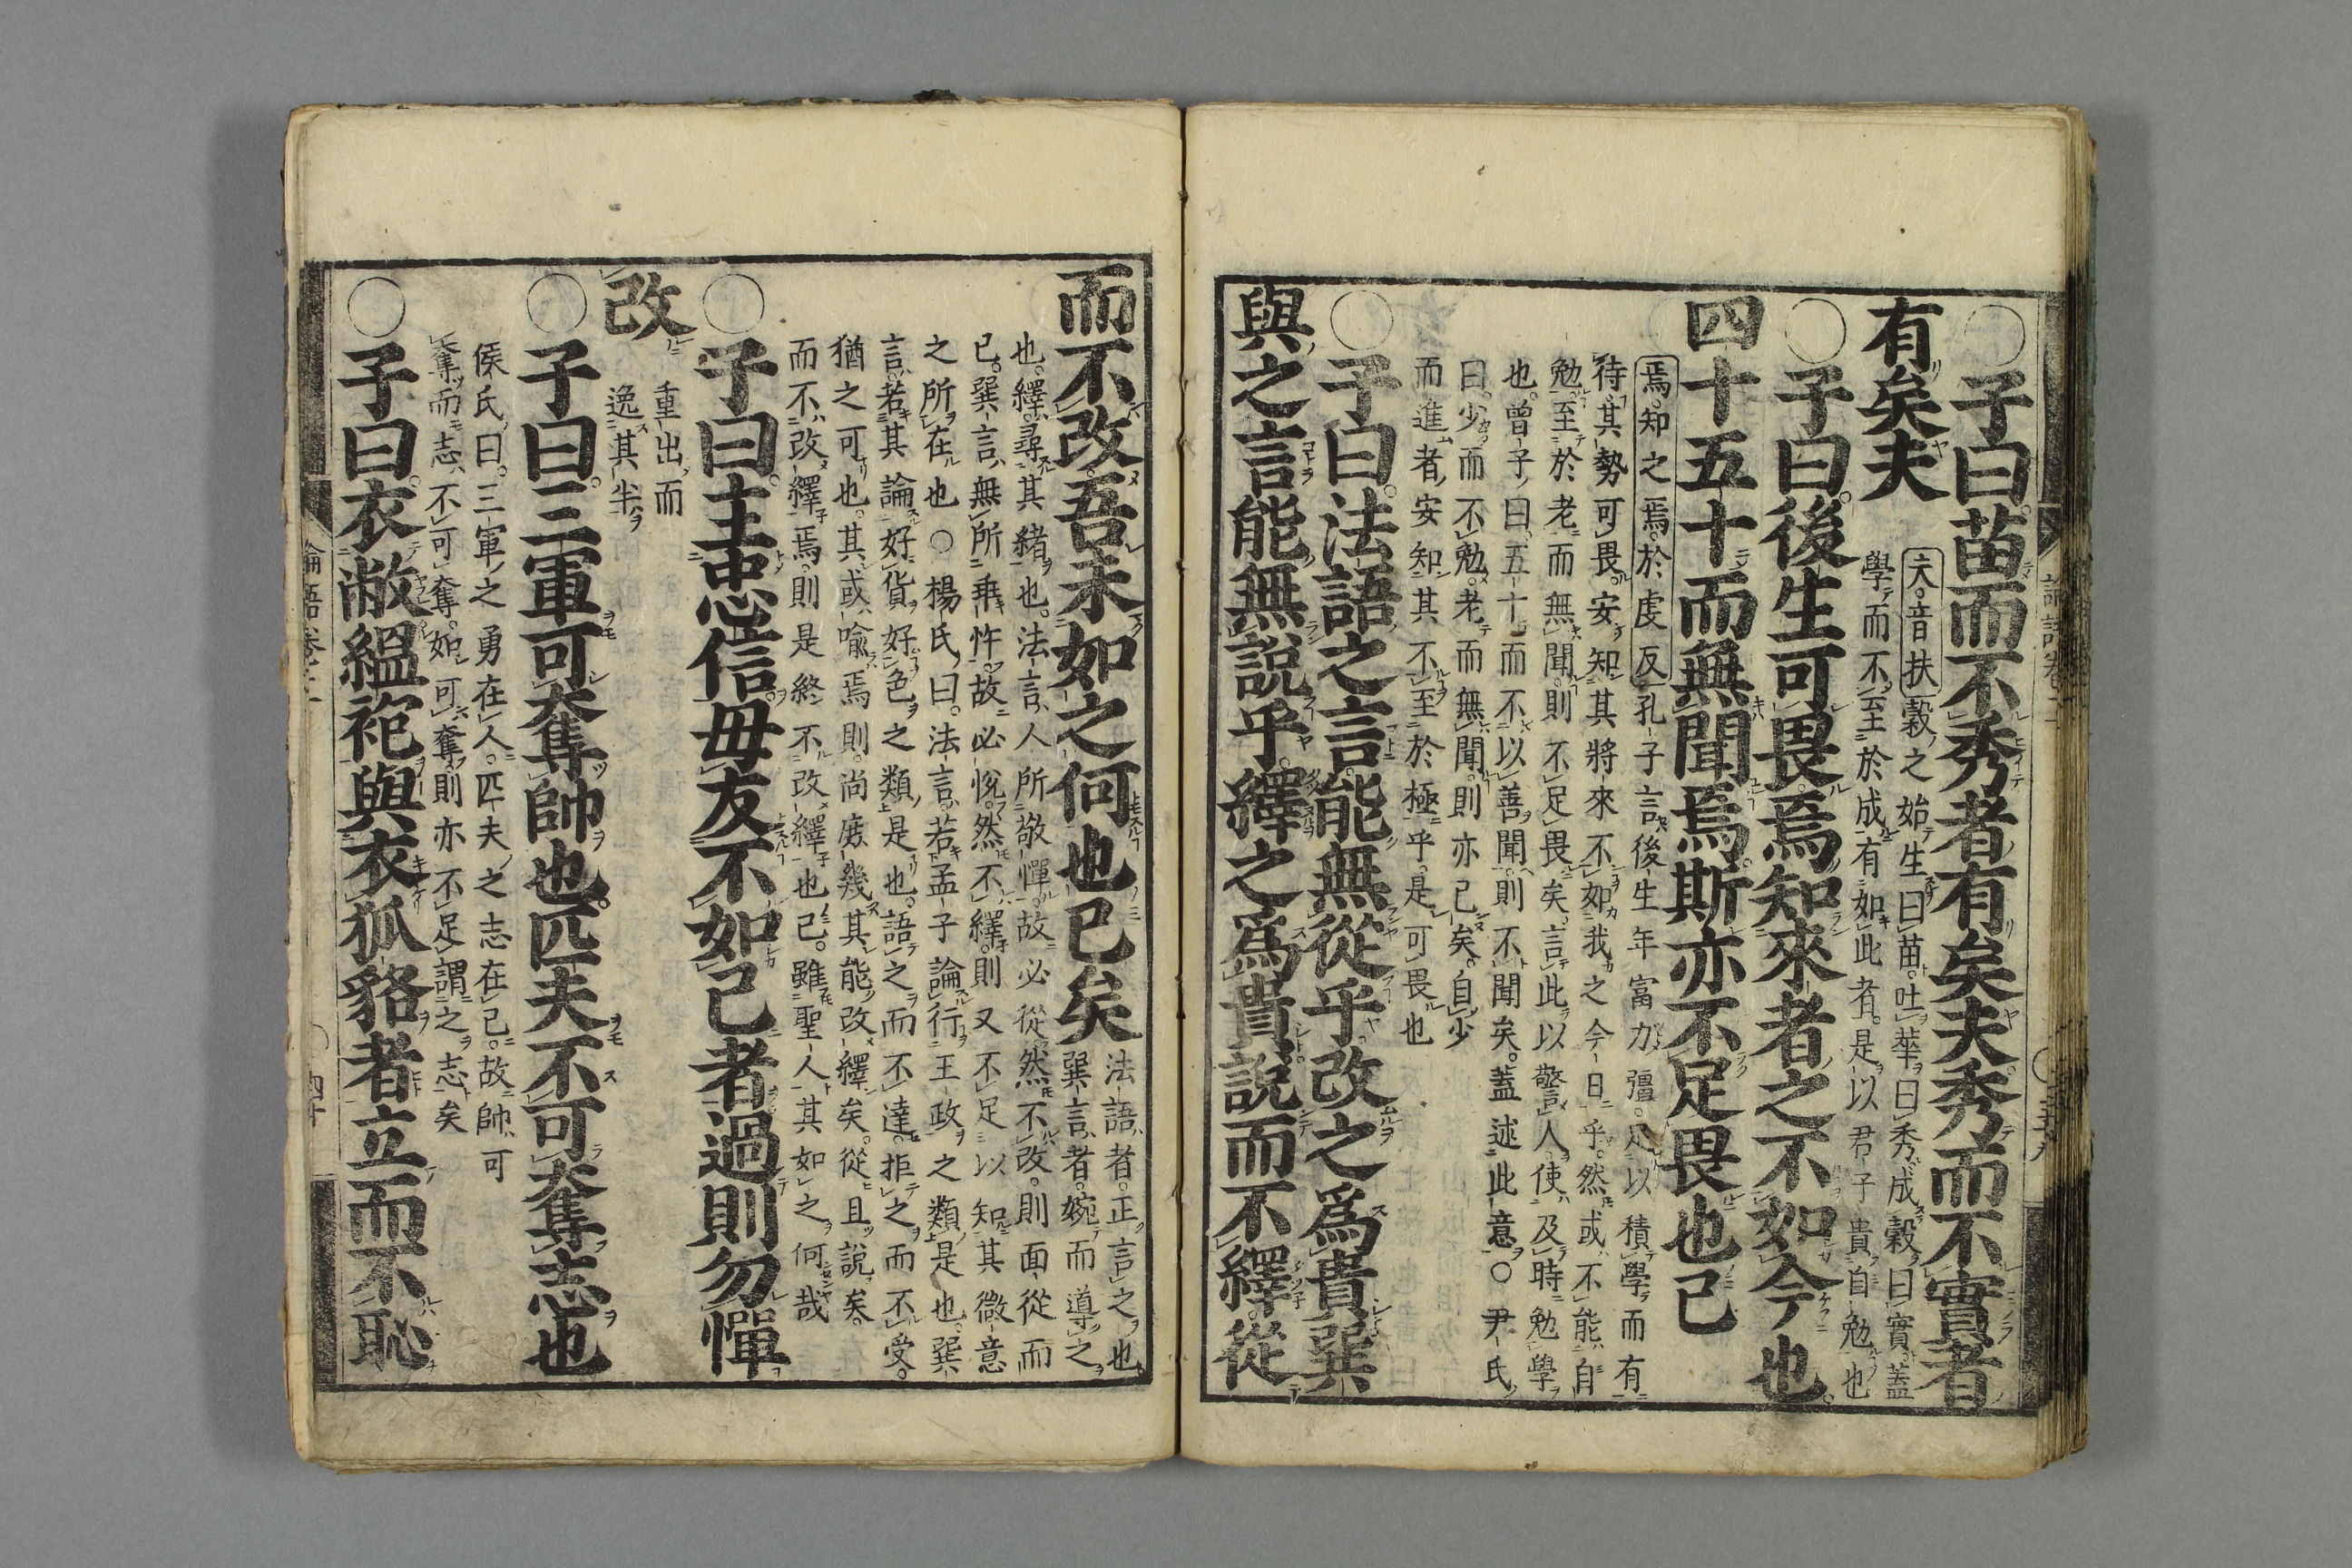 ○子曰苗而不秀者有矣夫秀而不實者
有矣夫
夫音扶穀之始生曰苗吐華曰秀成穀曰實蓋
學而不至於成有如此者是以君子貴自勉也
○子曰後生可畏焉知來者之不如今也
四十五十而無聞焉斯亦不足畏也已
焉知之焉於虔反孔子言後生年富力彊足以積學而有
待其勢可畏安知其將來不如我之今日乎然或不能自
勉至於老而無聞則不足畏矣言此以警人使及時勉學
也曾子曰五十而不以善聞則不聞矣蓋述此意○尹氏
曰少而不勉老而無聞則亦已矣自少
而進者安知其不至於極乎是可畏也
○子曰法語之言能無從乎改之爲貴巽
與之言能無說乎繹之爲貴說而不繹從
而不改吾末如之何也已矣
法語者正言之也
巽言者婉而導之
也繹尋其緒也法言人所敬憚故必從然不改則面從而
已巽言無所乖忤故必悅然不繹則又不足以知其微意
之所在也○楊氏曰法言若孟子論行王政之類是也巽
言若其論好貨好色之類是也語之而不達拒之而不受
猶之可也其或喻焉則尚庶幾其能改繹矣從且說矣
而不改繹焉則是終不改繹也已雖聖人其如之何哉
○子曰主忠信毋友不如己者過則勿憚
改
重出而
逸其半
○子曰三軍可奪帥也匹夫不可奪志也
侯氏曰三軍之勇在人匹夫之志在己故帥可
奪而志不可奪如可奪則亦不足謂之志矣
○子曰衣敝縕袍與衣狐貉者立而不恥
論語卷二
四十